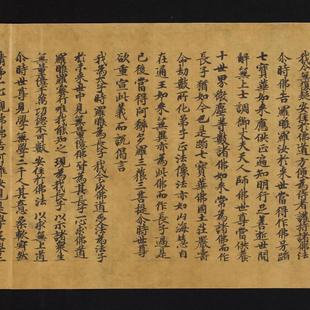 我今無復疑安住於佛道方便為侍者護持諸佛法
尒時佛告羅睺羅汝於來世當得作佛号蹈
七寶華如來應供正遍知明行足善逝世間
解無上士調御丈夫天人師佛世尊當供養
十世界微塵等數諸佛如來常為諸佛而作
長子猶如今也是蹈七寶華佛國土莊嚴壽
命劫數所化弟子正法像法亦如山海慧自
在通王如來無異亦為此佛而作長子過是
已後當得阿耨多羅三藐三菩提尒時世尊
欲重宣此義而說偈言
我為太子時羅睺為長子我今成佛道受法為法子
於未來世中見無量億佛皆為其長子一心求佛道
羅睺羅密行唯我能知之現為我長子以示諸眾生
無量億千万功德不可數安住於佛法以求無上道
尒時世尊見學無學二千人其意柔軟寂然
清淨一心觀佛佛告阿難汝見是學